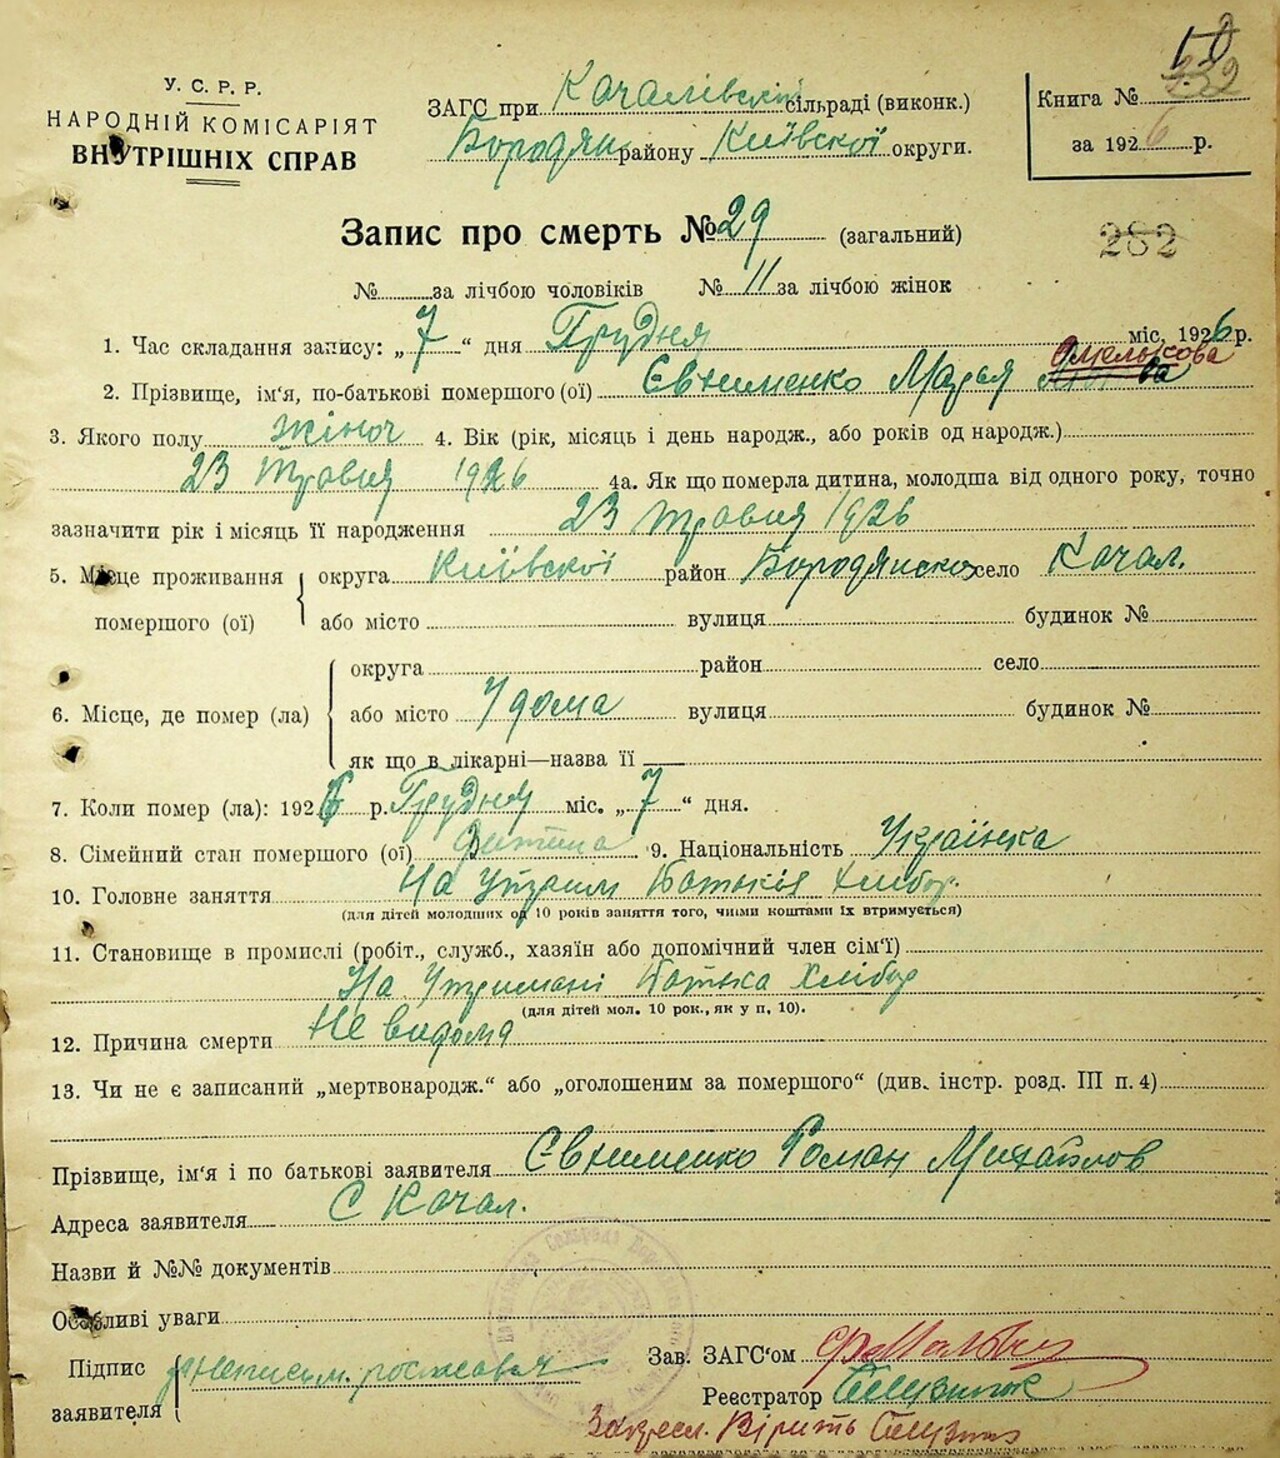 У. С. Р. Р.
НАРОДНІЙ КОМІСАРІЯТ
ВНУТРІШНІХ СПРАВ
ЗАГС при Качалівській сільраді (виконк.)
Бородян району Київської округи.
Книга №
за 1926 р.
Запис про смерть № 29 (загальний)
282
№ за лічбою чоловіків № 11 за лічбою жінок
1. Час складання запису: „7“ дня Грудня міс. 1926 р.
Омелькова
2. Прізвище, ім‘я, по-батькові помершого (ої) Євтименко Марья
3. Якого полу жіноч 4. Вік (рік, місяць і день народж., або років од народж.)
23 травня 1926 4а. Як що померла дитина, молодша від одного року, точно
зазначити рік і місяць її народження 23 травня 1926
5. Місце проживання помершого (ої) округа Київської район Бородянском село Качал.
або місто вулиця будинок №
6. Місце, де помер (ла) округа район село
або місто У дома вулиця будинок №
як що в лікарні—назва її
7. Коли помер (ла): 1926 р. Грудня міс. „7“ дня.
8. Сімейний стан помершого (ої) Дитина 9. Національність Українка
10. Головне заняття На утрим Батькія хлибор.
(для дітей молодших од 10 років заняття того, чиїми коштами їх втримується)
11. Становище в промислі (робіт., служб., хазяїн або допомічний член сім‘ї)
На Утримані Батька Хлібор
(для дітей мол. 10 рок., як у п, 10).
12. Причина смерти Не видома
13. Чи не є записаний „мертвонародж.“ або „оголошеним за помершого“ (див. інстр. розд. III п. 4)
Прізвище, ім‘я і по батькові заявителя Євтименко Роман Михайлов
Адреса заявителя С Качал.
Назви й №№ документів
Особливі уваги
Підпис заявителя Неписьм.
Зав. ЗАГС‘ом
Реєстратор
Вірить